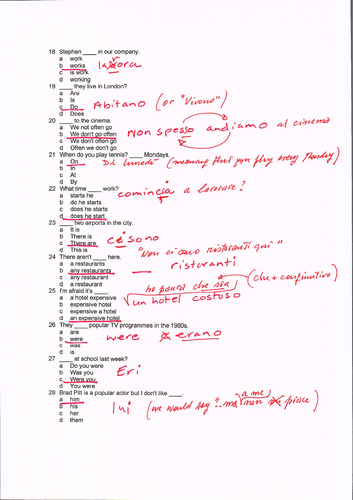 18 Stephen ____ in our company.
a work
b works lavora
c is work
d working
19 ____ they live in London?
a Are
b Is
c Do Abitano (or "Vivono")
d Does
20 ____ to the cinema.
a We not often go
b We don't go often non spesso andiamo al cinema
c We don't often go
d Often we don't go
21 When do you play tennis? ____ Mondays.
a On Di lunedì (meaning that you play every Monday)
b In
c At
d By
22 What time ____ work?
a starts he
b do he starts comincia a lavorare?
c does he starts
d does he start
23 ____ two airports in the city.
a It is
b There is
c There are ci sono
d This is
"Non ci sono ristoranti qui"
24 There aren't ____ here.
a a restaurants
b any restaurants ristoranti
c any restaurant
d a restaurant
25 I'm afraid it's ____. ho paura che sia (che + congiuntivo)
a a hotel expensive
b expensive hotel un hotel costoso
c expensive a hotel
d an expensive hotel
26 They ____ popular TV programmes in the 1980s.
a are
b were were erano
c was
d is
27 ____ at school last week?
a Do you were
b Was you Eri
c Were you
d You were
28 Brad Pitt is a popular actor but I don't like ____.
a him a me
b his lui (we would say "..ma non piace
c her
d them